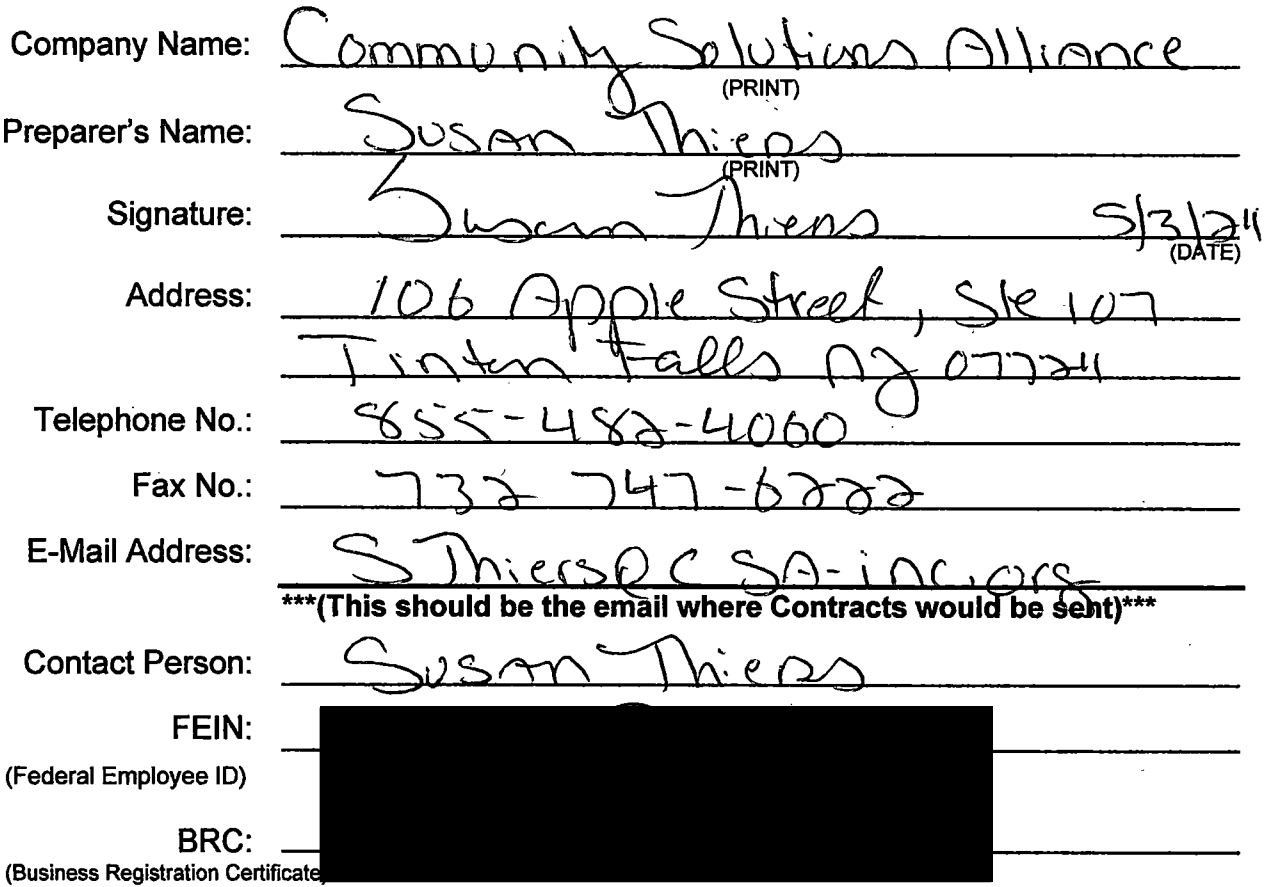 Company Name: Community Solutions Alliance
(PRINT)
Preparer's Name: Susan Thiers
(PRINT)
Signature: Susan Thiers 5/3/24
(DATE)
Address: 106 Apple Street, Ste 107
Tinton Falls NJ 07724
Telephone No.: 855-482-4060
Fax No.: 732 747-6222
E-Mail Address: SThiers@CSA-inc.org
***(This should be the email where Contracts would be sent)***
Contact Person: Susan Thiers
FEIN:
(Federal Employee ID)
BRC:
(Business Registration Certificate)